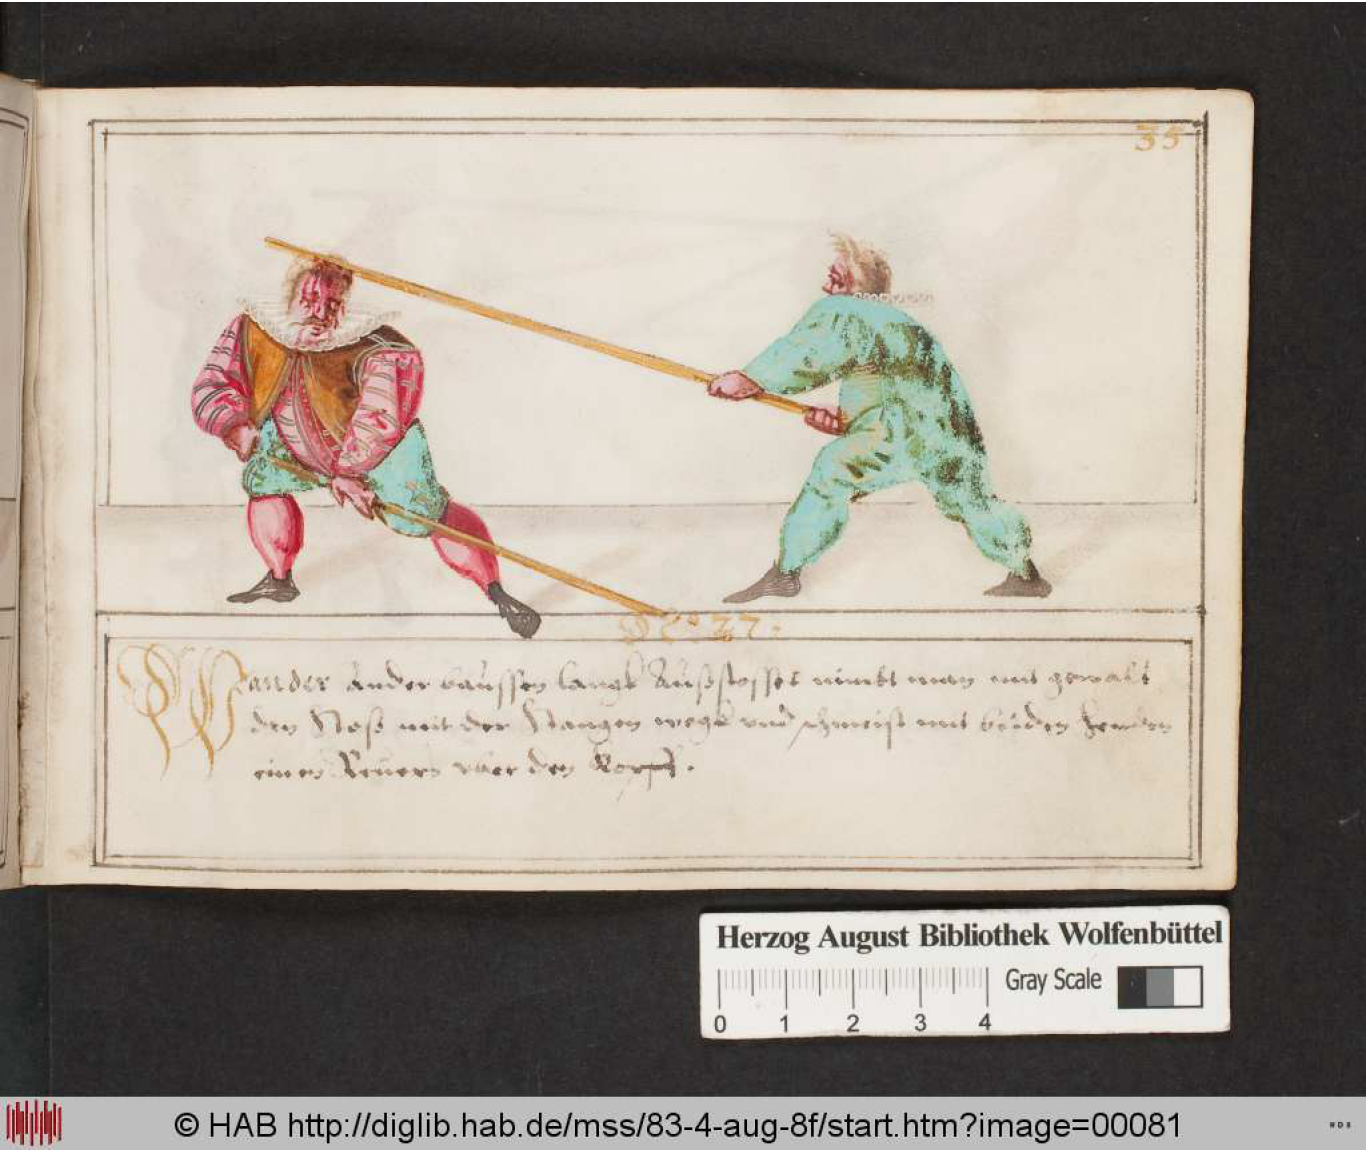 35
No 27.
Wan der ander baussen langk Außstosset nimbt man mit gewalt
den Stoß mit der Stangen wegk vnd schmeist mit beiden henden
einen Reuers vber den Kopff.
Herzog August Bibliothek Wolfenbüttel
Gray Scale
0 1 2 3 4
© HAB http://diglib.hab.de/mss/83-4-aug-8f/start.htm?image=00081